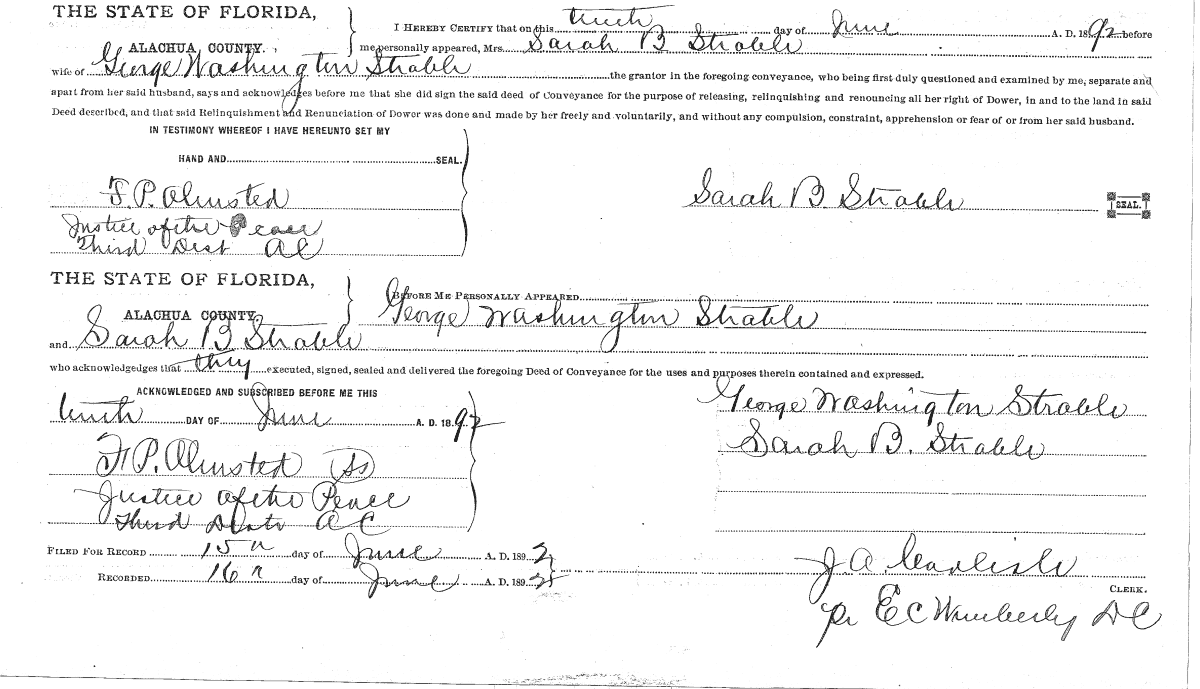 THE STATE OF FLORIDA,
ALACHUA COUNTY.
I HEREBY CERTIFY that on this tenth day of June A. D. 1892 before
me personally appeared, Mrs. Sarah B Strable
wife of George Washington Strable the grantor in the foregoing conveyance, who being first duly questioned and examined by me, separate and
apart from her said husband, says and acknowledges before me that she did sign the said deed of Conveyance for the purpose of releasing, relinquishing and renouncing all her right of Dower, in and to the land in said
Deed described, and that said Relinquishment and Renunciation of Dower was done and made by her freely and voluntarily, and without any compulsion, constraint, apprehension or fear of or from her said husband.
IN TESTIMONY WHEREOF I HAVE HEREUNTO SET MY
HAND AND SEAL.
F. P. Olmsted
Justice of the Peace
Third Dist AC
Sarah B. Strable
SEAL.
THE STATE OF FLORIDA,
ALACHUA COUNTY.
BEFORE ME PERSONALLY APPEARED
George Washington Strable
and Sarah B Strable
who acknowledgedges that they executed, signed, sealed and delivered the foregoing Deed of Conveyance for the uses and purposes therein contained and expressed.
ACKNOWLEDGED AND SUBSCRIBED BEFORE ME THIS
tenth DAY OF June A. D. 1892
F. P. Olmsted
Justice of the Peace
Third AC
George Washington Strable
Sarah B. Strable
FILED FOR RECORD 15 day of June A. D. 1892
RECORDED 16 day of June A. D. 189
J. A. Carlisle
CLERK.
pr E C Wimberly DC